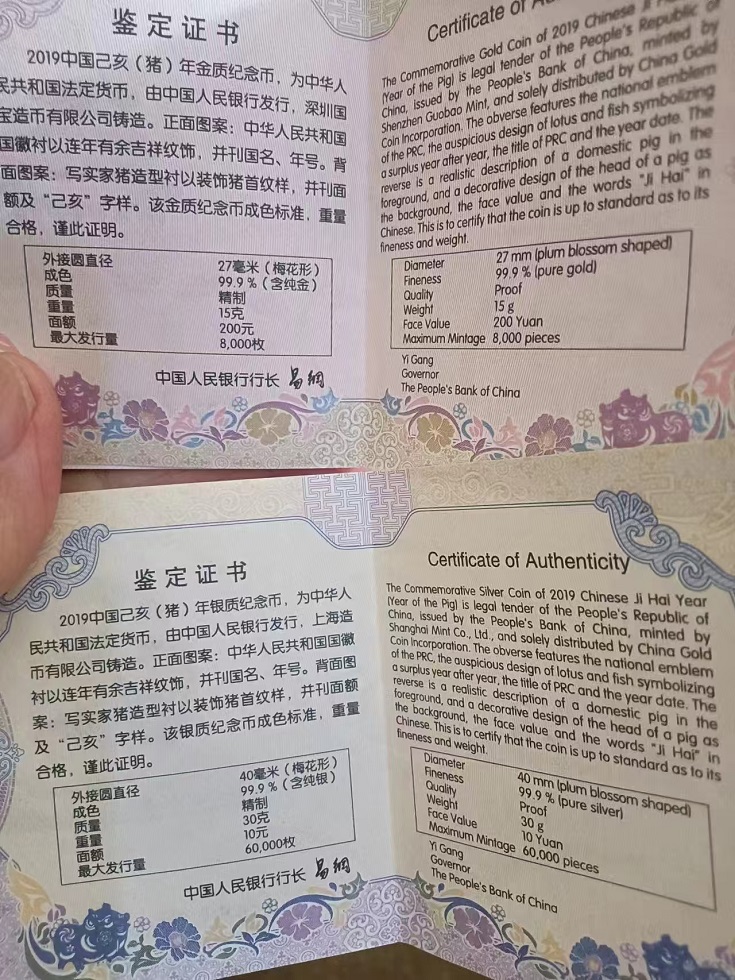 鉴定证书
2019中国己亥（猪）年金质纪念币，为中华人
民共和国法定货币，由中国人民银行发行，深圳国
宝造币有限公司铸造。正面图案：中华人民共和国
国徽衬以连年有余吉祥纹饰，并刊国名、年号。背
面图案：写实家猪造型衬以装饰猪首纹样，并刊面
额及“己亥”字样。该金质纪念币成色标准，重量
合格，谨此证明。
外接圆直径 27毫米（梅花形）
成色 99.9％（含纯金）
质量 精制
重量 15克
面额 200元
最大发行量 8,000枚
中国人民银行行长 易纲
Certificate of
The Commemorative Gold Coin of 2019 Chinese Ji
(Year of the Pig) is legal tender of the People's Republic of
China, issued by the People's Bank of China, minted by
Shenzhen Guobao Mint, and solely distributed by China Gold
Coin Incorporation. The obverse features the national emblem
of the PRC, the auspicious design of lotus and fish symbolizing
a surplus year after year, the title of PRC and the year date. The
reverse is a realistic description of a domestic pig in the
foreground, and a decorative design of the head of a pig as
the background, the face value and the words "Ji Hai" in
Chinese. This is to certify that the coin is up to standard as to its
fineness and weight.
Diameter 27 mm (plum blossom shaped)
Fineness 99.9 % (pure gold)
Quality Proof
Weight 15 g
Face Value 200 Yuan
Maximum Mintage 8,000 pieces
Yi Gang
Governor
The People's Bank of China
鉴定证书
2019中国己亥（猪）年银质纪念币，为中华人
民共和国法定货币，由中国人民银行发行，上海造
币有限公司铸造。正面图案：中华人民共和国国徽
衬以连年有余吉祥纹饰，并刊国名、年号。背面图
案：写实家猪造型衬以装饰猪首纹样，并刊面额
及“己亥”字样。该银质纪念币成色标准，重量
合格，谨此证明。
外接圆直径 40毫米（梅花形）
成色 99.9％（含纯银）
质量 精制
重量 30克
面额 10元
最大发行量 60,000枚
中国人民银行行长 易纲
Certificate of Authenticity
The Commemorative Silver Coin of 2019 Chinese Ji Hai Year
(Year of the Pig) is legal tender of the People's Republic of
China, issued by the People's Bank of China, minted by
Shanghai Mint Co., Ltd., and solely distributed by China Gold
Coin Incorporation. The obverse features the national emblem
of the PRC, the auspicious design of lotus and fish symbolizing
a surplus year after year, the title of PRC and the year date. The
reverse is a realistic description of a domestic pig in the
foreground, and a decorative design of the head of a pig as
the background, the face value and the words "Ji Hai" in
Chinese. This is to certify that the coin is up to standard as to its
fineness and weight.
Diameter 40 mm (plum blossom shaped)
Fineness 99.9 % (pure silver)
Quality Proof
Weight 30 g
Face Value 10 Yuan
Maximum Mintage 60,000 pieces
Yi Gang
Governor
The People's Bank of China